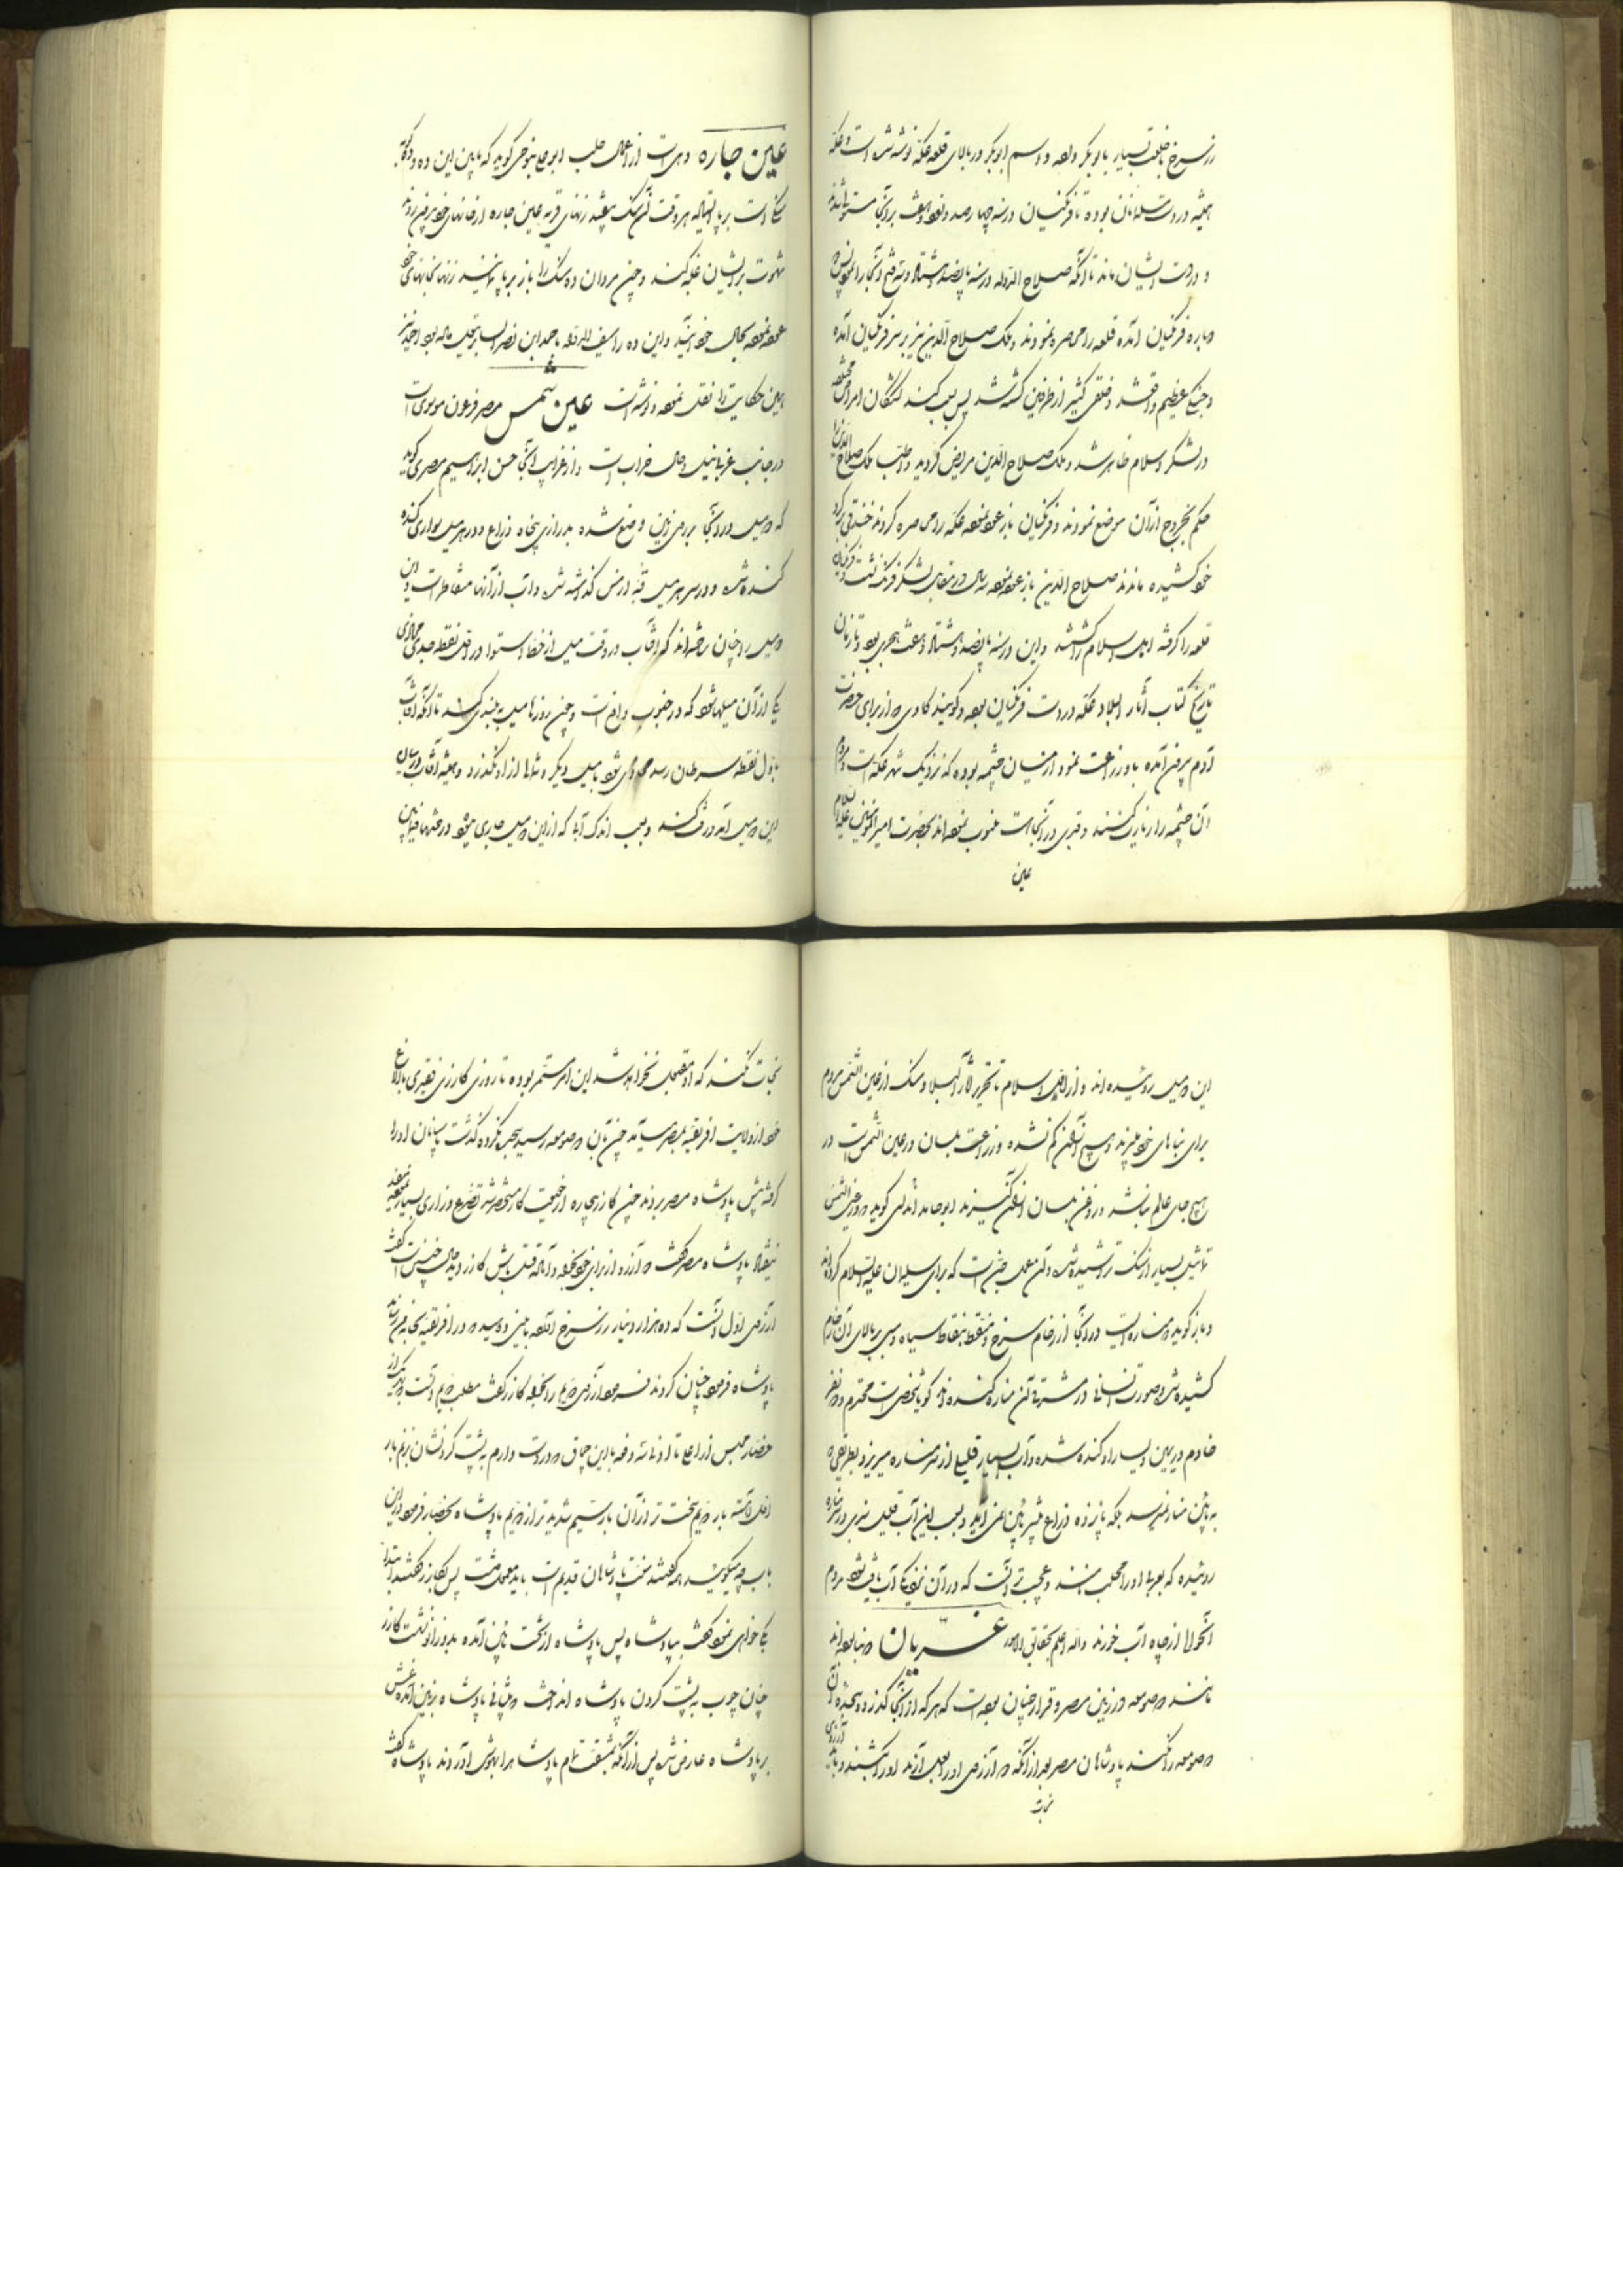 زر سرخ با خلعت بسیار بابوبکر داده و اسم ابوبکر در بالای قلعه عکه نوشته شده است و عکه
همیشه در دست مسلمانان بوده تا فرنگیان در سنه چهارصد و نود و هفت بر آنجا مستولی شدند
و در دست ایشان ماند تا آنکه صلاح الدوله در سنه پانصد و هشتاد و سه فتح آنجا را نمود پس
دوباره فرنگیان آمده قلعه را محاصره نمودند و ملک صلاح الدین نیز بر سر فرنگیان آمده
و جنگ عظیم واقع شد و خلقی کثیر از طرفین کشته شد پس بسبب گند کشتگان امراض مختلفه
در لشکر اسلام ظاهر شد و ملک صلاح الدین مریض گردید و طبیب ملک صلاح الدین را
حکم بخروج از آن موضع نمودند و فرنگیان باز عود نموده عکه را محاصره کردند خندقی بر گرد
خود کشیده ماندند صلاح الدین باز عود نموده سه سال در مقابل لشکر فرنگ نشست و فرنگیان
قلعه را گرفته اهل اسلام را کشتند و این در سنه پانصد و هشتاد و هفت هجری بود و تا زمان
تاریخ کتاب آثار البلاد عکه در دست فرنگیان بوده و گویند گاوی که از برای حضرت
آدم بیرون آمده با او زراعت نمود از میان چشمه بوده که نزدیک شهر عکه است و مردم
آن چشمه را زیارت کنند و قبری در آنجا است منسوب نموده اند بحضرت امیرالمؤمنین علیه السلام
عین
عین جاره دهی است از اعمال حلب ابوعلی تنوخی گوید که مابین این ده و ده کوبه
سنگی است برپا ایستاده هر وقت آن سنگ بیفتد زنهای قریه عین جاره از خانهای خود بیرون روند
شهوت بر ایشان غلبه کند و چون مردان ده سنگ را باز برپا نمایند زنها بخانهای خود
عود نموده بحال خود آیند و این ده را سیف الدوله باحمد ابن نصر البازیار بخشیده بود احمد نیز
این حکایت را نقل نموده و نوشته است عین شمس مصر فرعون موسی است
در جانب غربی نیل و حال خراب است و از غرایب آنجا حسن ابراهیم مصری گوید
که دو میل در آنجا بر روی زمین وضع شده بدرازی پنجاه ذراع و در هر میل سواری کنده
کنده شده و در سر هر میل قبه از مس گذاشته شده و آب از آنها متقاطر است و این
دو میل را چنان ساخته اند که آفتاب در وقت میل از خط استوا در اول نقطه جدی محاذی
یکی از آن میلها شود که در جنوب واقع است و چون روزها میل به بلندی کند تا آنکه آفتاب
باول نقطه سرطان رسد محاذی شود با میل دیگر و شمالا از او نگذرد و همیشه آفتاب در میان
این دو میل آمد و رفت کند و بسبب اندک آبی که از این دو میل جاری میشود درختها مابین
این دو میل روئیده اند و از اول اسلام تا تحریر آثار البلاد سنگ از عین الشمس مردم
برای بناهای خود میبرند و هیچ از آن کم نشده و زراعت بلسان در عین الشمس است در
هیچ جای عالم نباشد و روغن بلسان از آن گیرند ابوحامد اندلسی گوید در عین الشمس
تماثیل بسیار از سنگ تراشیده شده و آن معمل جن است که برای سلیمان علیه السلام کرده اند
و باز گوید مناره ایست در آنجا از رخام سرخ و منقط بنقاط سیاه و مس بر بالای آن رخام
کشیده شده و صورت انسانی در مس آن مناره کنده اند گویا شخصی است محترم و دو نفر
خادم در یمین و یسار او کنده شده و آب بسیار قلیلی از سر مناره میریزد بطریقی که
به پائین منار نمیرسد بلکه پانزده ذراع بیشتر پائین نمی آید و بسبب این آب قلیل سبزی در مناره
روئیده که بعربی او را طحلب نامند و عجب تر آنست که در آن نزدیکی آب یافت نشود مردم
آنحوالی از چاه آب خورند والله اعلم بحقائق الامور غریان دو بنا بوده اند
مانند دو صومعه در زمین مصر و قرار چنان بوده است که هر که از آنجا گذرد و سجده آن
دو صومعه را نکند پادشاهان مصر بعد از آنکه دو آرزوی او را بعمل آرند او را بکشند و باید آرزوی
نجات
نجات نکند که او مقبول نخواهد شد این امر مستمر بوده تا روزی گازری فقیری با الاغ
خود از ولایت افریقیه بمصر میآمد چون بآن دو صومعه رسید سجده نکرده گذشت پاسبانان او را
گرفته پیش پادشاه مصر بردند چون گازر بیچاره از حقیقت کار مستحضر شد تضرع و زاری بسیار نموده
نیفتاد پادشاه مصر گفت دو آرزو از برای خود بخواه و آماده قتل باش گازر دید حال چنین است گفت
آرزوی اول آنست که ده هزار دینار زر سرخ الحال بمن دهید و در افریقیه بخانه من رسانند
پادشاه فرمود چنان کردند فرمود آرزوی دویم را بخواه گازر گفت مطلب دویم آنست که هر یک از
حضار مجلس از اعلی تا ادنی سه دفعه باین چماق که در دست دارم به پشت گردنشان بزنم بار
اول آهسته بار دویم سخت تر از آن بار سیم شدیدتر از دویم پادشاه بحضار فرمود در این
باب چه میگوئید همه گفتند سنت پادشاهان قدیم است باید معمول داشت پس بگازر گفتند ابتدا
بکه خواهی نمود گفت بپادشاه پس پادشاه از تخت پائین آمده بدو زانو نشست گازر
چنان چوب به پشت گردن پادشاه انداخت که پیشانی پادشاه بزمین آمده غش
بر پادشاه عارض شد پس از آنکه بمشقت تمام پادشاه را بهوش آوردند پادشاه گفت